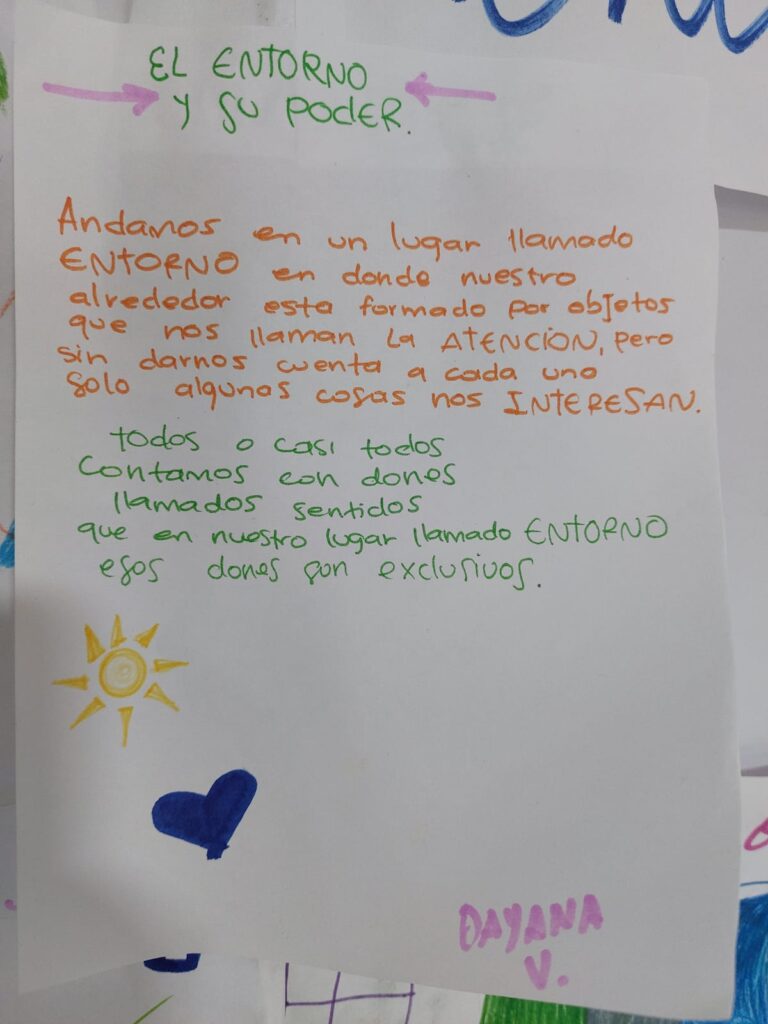 EL ENTORNO
Y SU PODER.
Andamos en un lugar llamado
ENTORNO en donde nuestro
alrededor esta formado por objetos
que nos llaman la ATENCION, pero
sin darnos cuenta a cada uno
solo algunas cosas nos INTERESAN.
todos o casi todos
contamos con dones
llamados sentidos
que en nuestro lugar llamado ENTORNO
esos dones son exclusivos.
DAYANA
V.